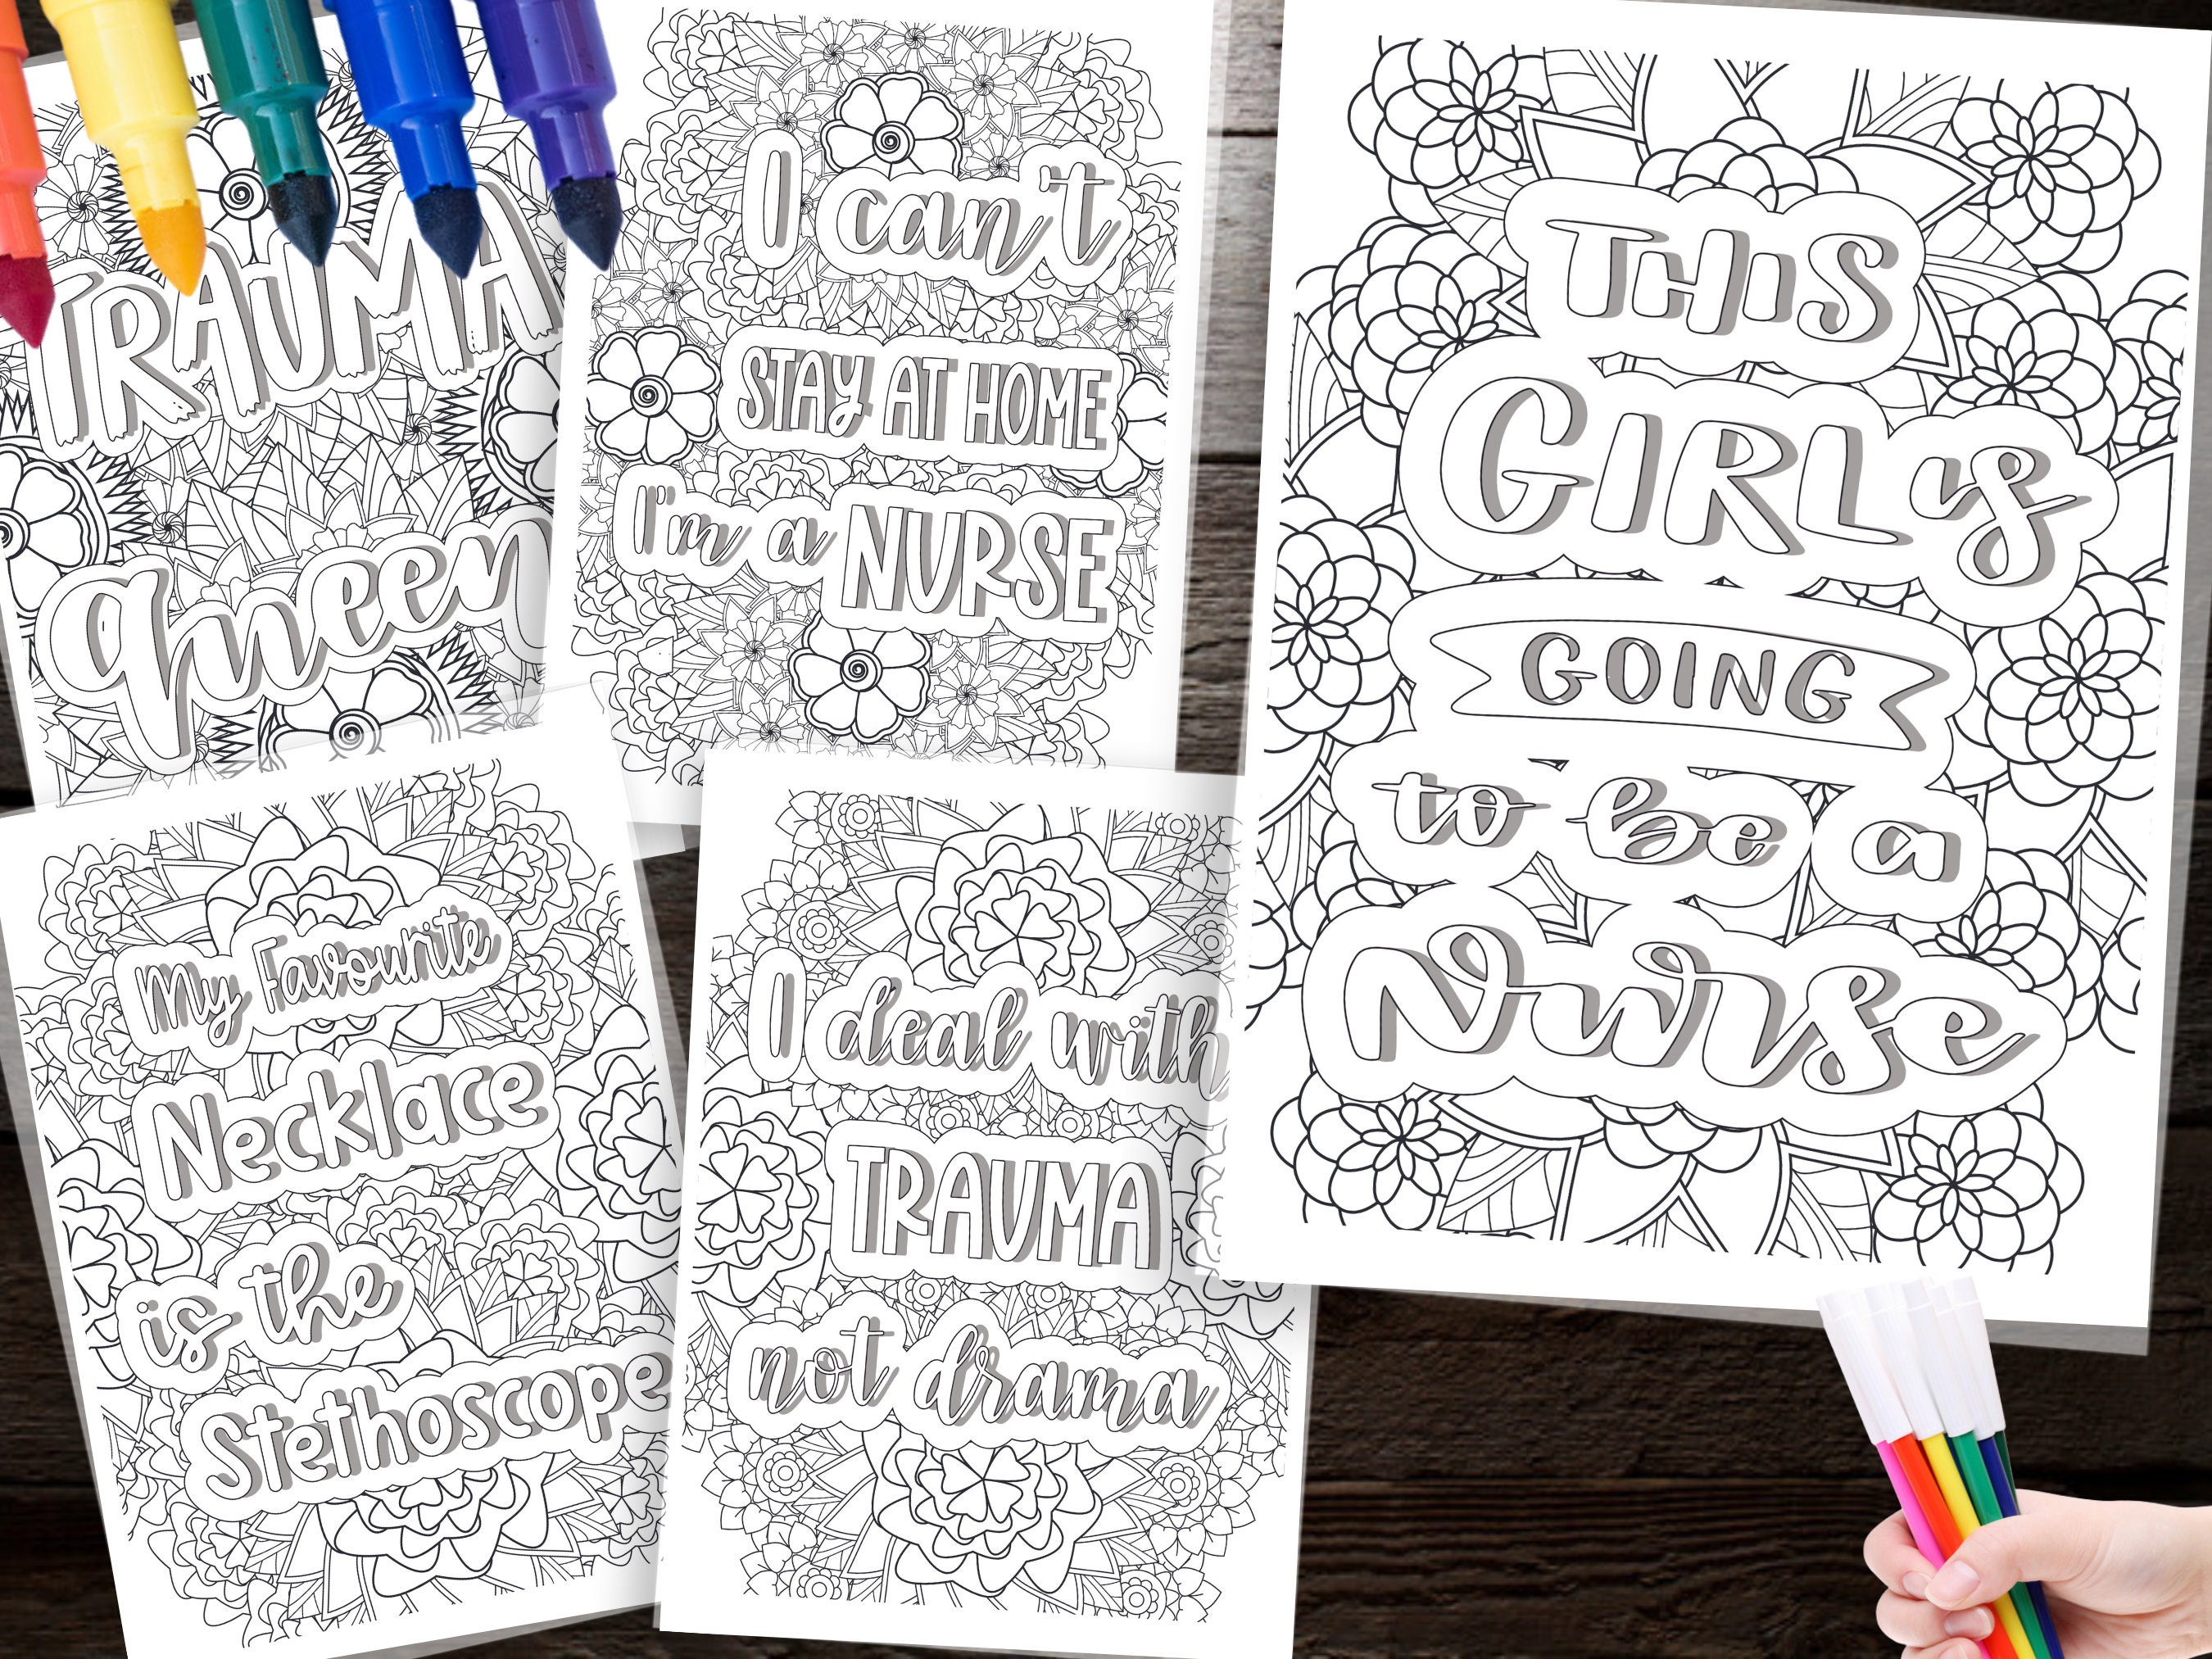 TRAUMA
queen
I can't
STAY AT HOME
I'm a NURSE
THIS
GIRL is
GOING
to be a
Nurse
My Favourite
Necklace
is the
Stethoscope
I deal with
TRAUMA
not drama